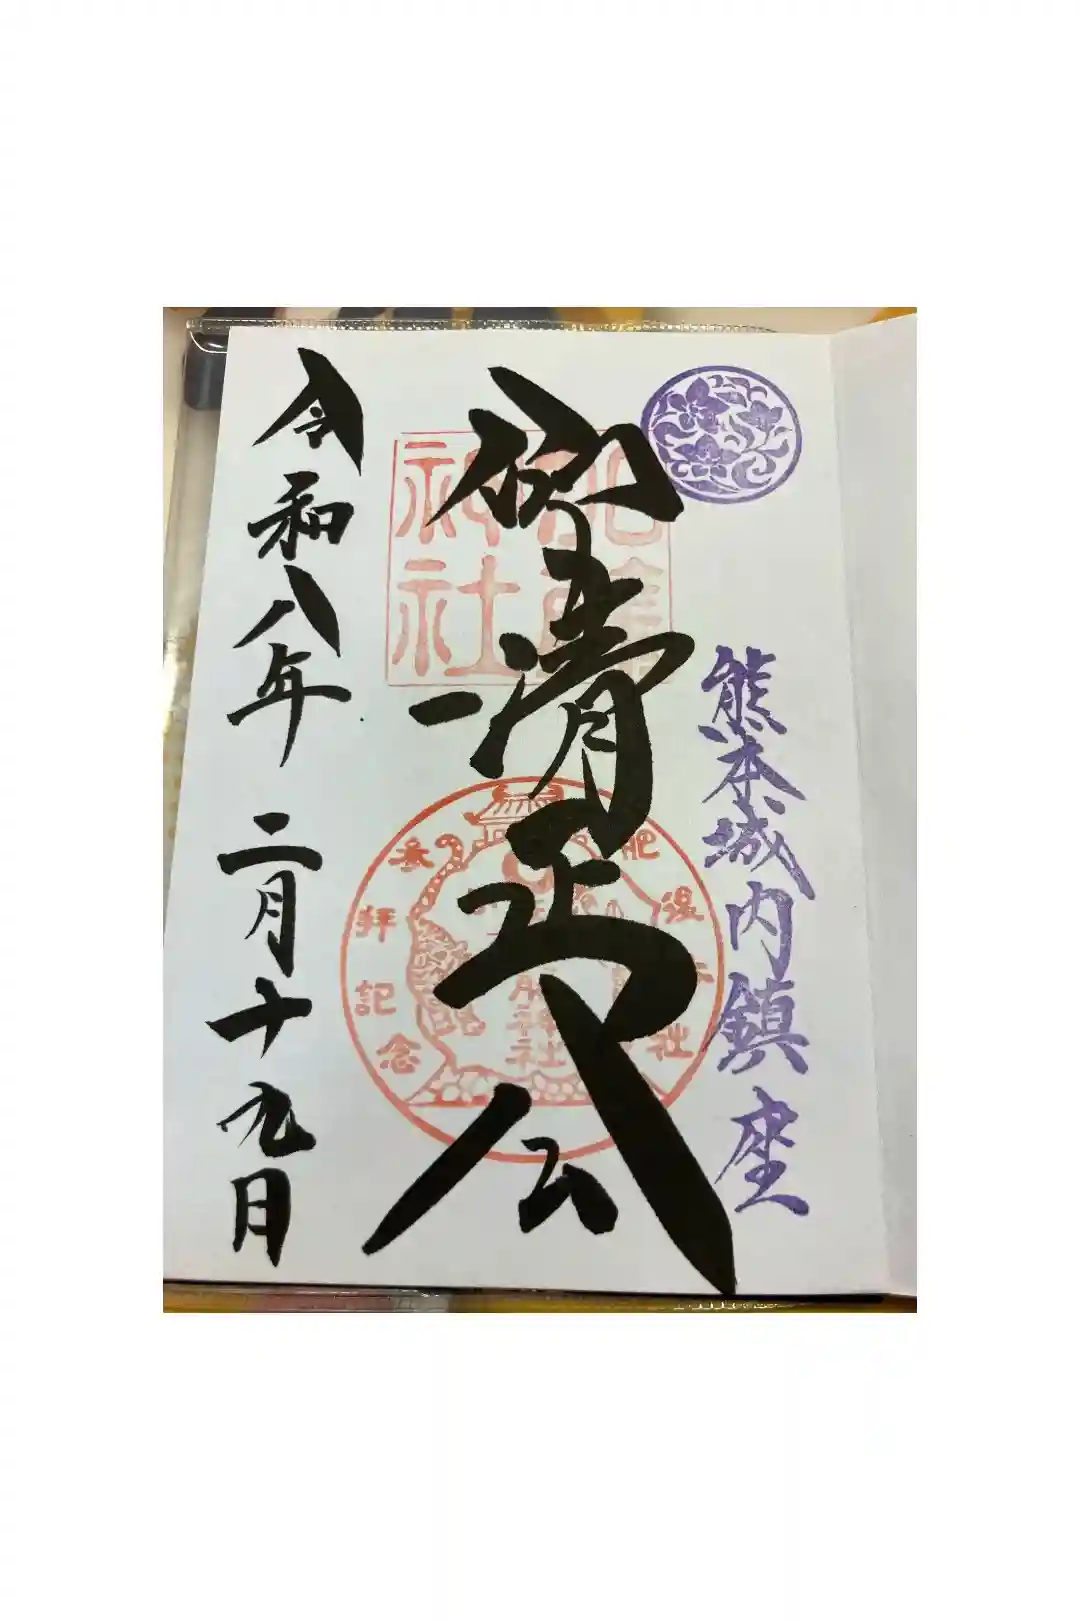 熊本城内鎮座
仰清正公
加藤
神社
肥後
社
参拝記念
藤神社
令和八年二月十九日